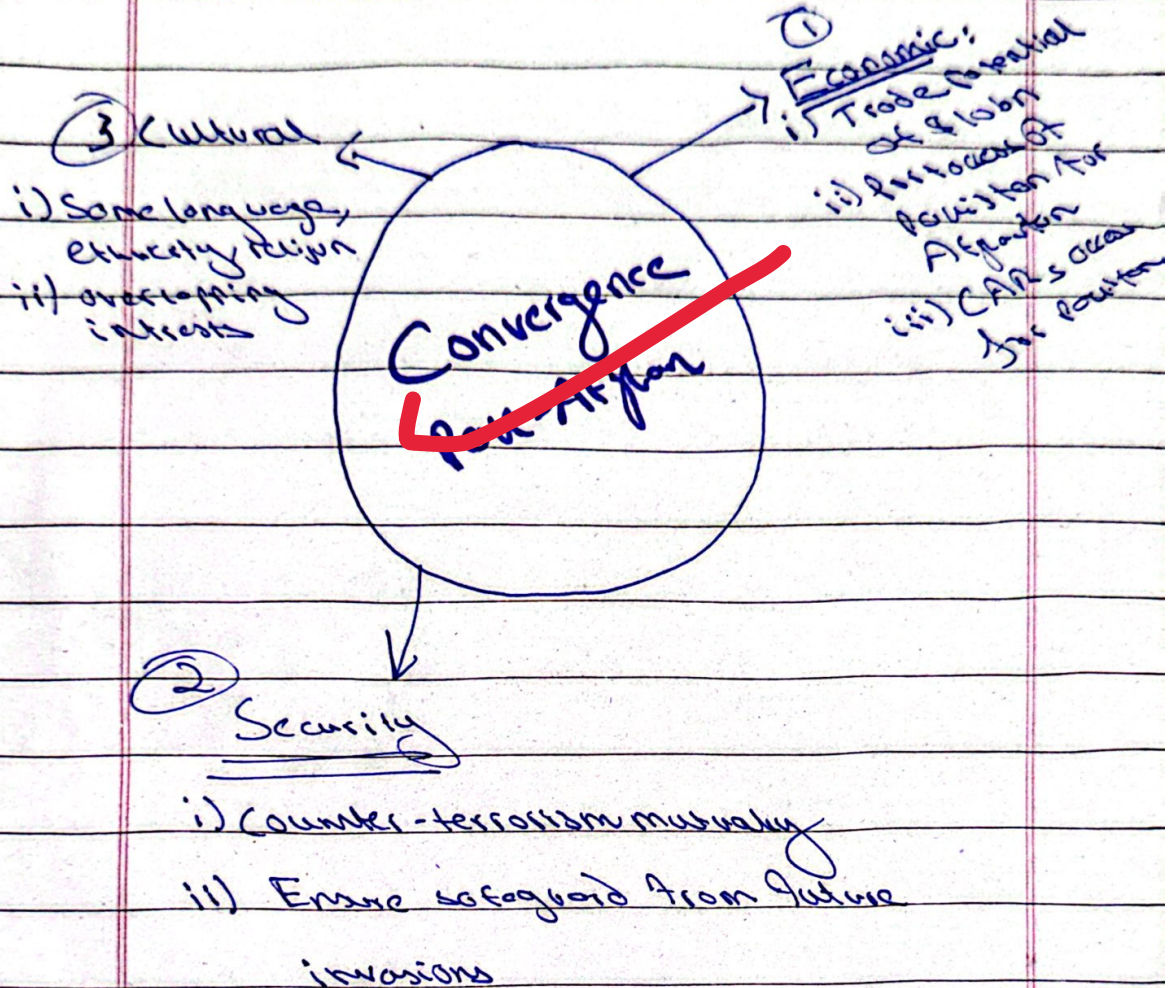 ①
Economic:
i) Trade Potential
of $10bn
ii) Port access of
Pakistan for
Afghanistan
iii) CARs access
for Pakistan
③ Cultural
i) Same language,
ethnicity, religion
ii) overlapping
intrests
Convergence
Pak-Afghan
②
Security
i) Counter-terrorism mutually
ii) Ensure safeguard from future
invasions